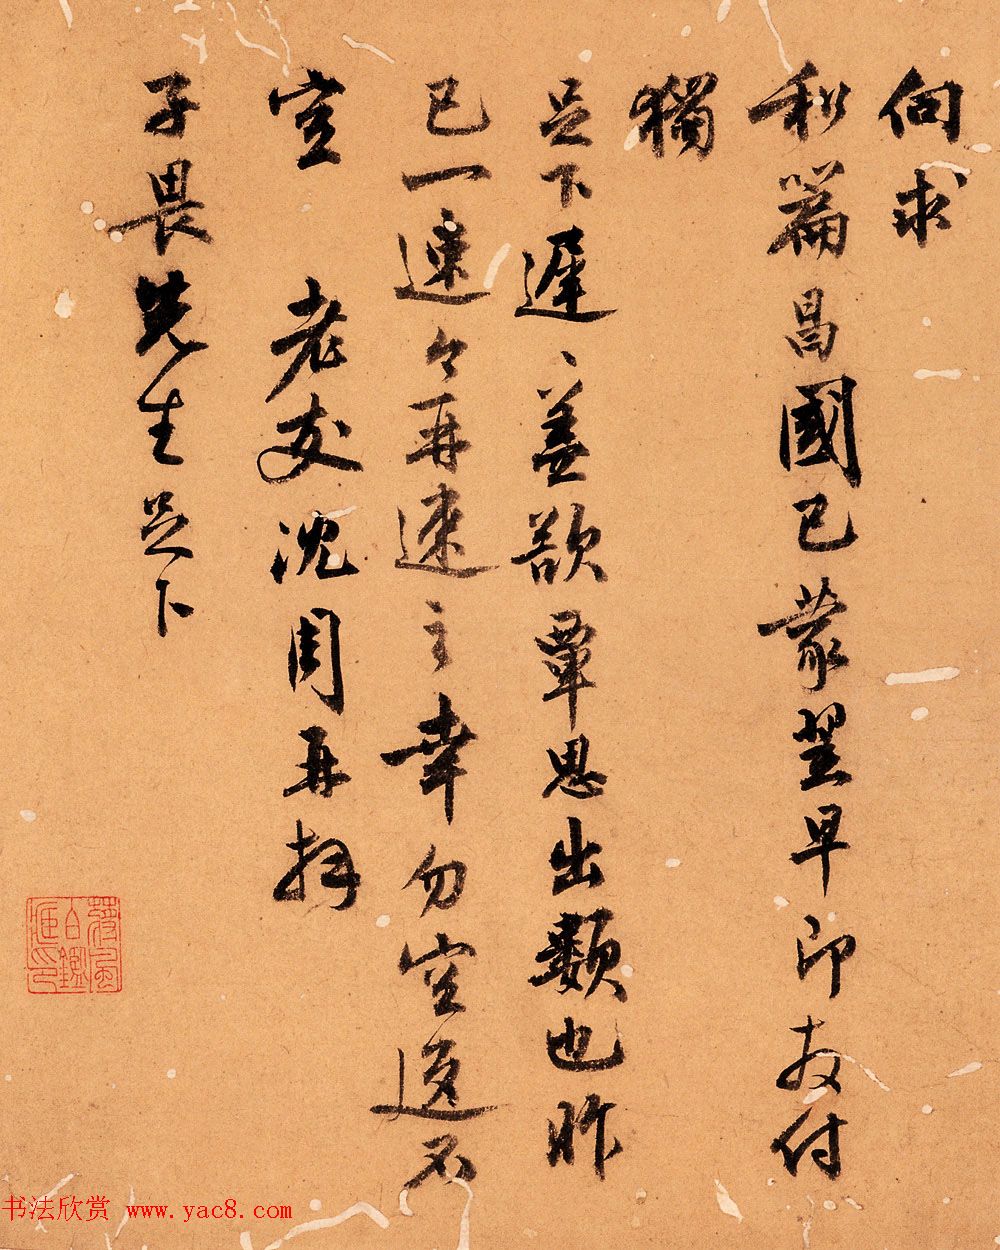 向求
和篇昌國已蒙翌早即付
獨
足下遲〻蓋欲覃思出類也昨
已一速今再速之幸勿空返不
宣 老友沈周再拜
子畏先生足下
书法欣赏 www.yac8.com